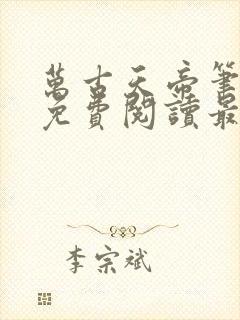 萬古天帝筆
免費閱讀最
李宗斌